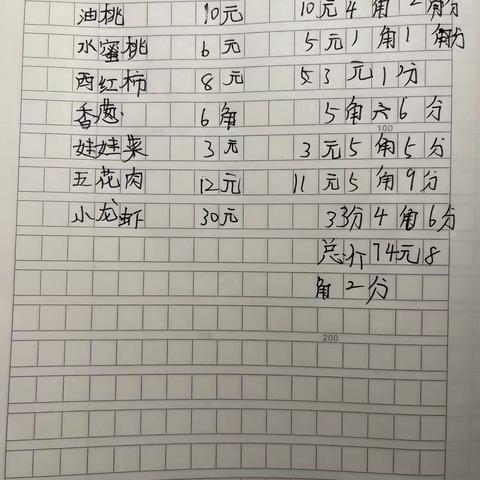 油桃 10元 10元4角2分
水蜜桃 6元 5元1角1分
西红柿 8元 3元1分
香葱 6角 5角6分
100
娃娃菜 3元 3元5角5分
五花肉 12元 11元5角9分
小龙虾 30元 33分4角6分
总计74元8
角2分
200